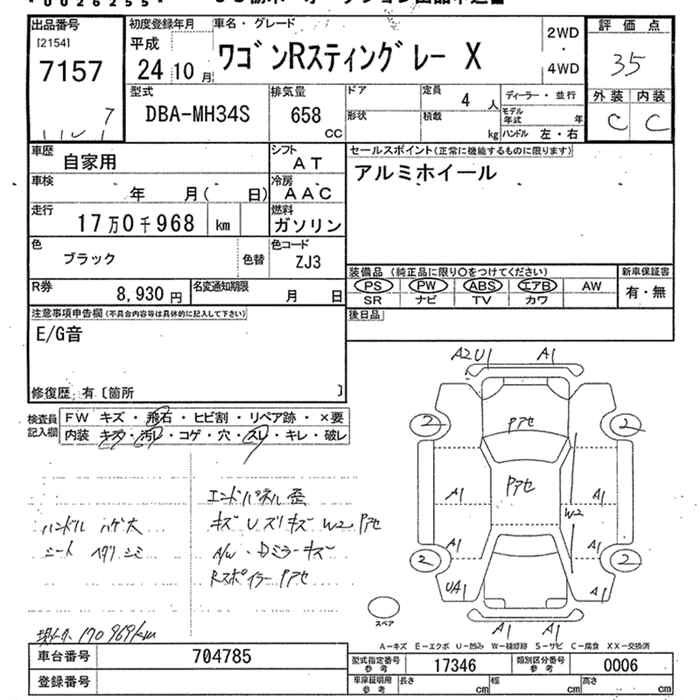 *0026255*
出品番号 初度登録年月 車名・グレード 2WD ・ 4WD 評価点
[2154] 7157
平成 24年10月 ワゴンRスティングレー X 35
型式 排気量 ドア 定員 4人 ディーラー・並行 外装 内装
DBA-MH34S 658 CC 形状 積載 kg モデル年式 年 ハンドル 左・右 C C
車歴 自家用 シフト AT セールスポイント(正常に機能するものに限ります)
アルミホイール
車検 年 月( 日) 冷房 AAC
走行 17万0千968 km 燃料 ガソリン
色 ブラック 色替 色コード ZJ3
装備品 (純正品に限り○をつけてください) 新車保証書
PS PW ABS エアB AW 有・無
SR ナビ TV カワ
R券 8,930円 名変通知期限 月 日
後日品
注意事項申告欄(不具合内容等は具体的に記入して下さい)
E/G音
修復歴:有〔箇所 〕
検査員記入欄 FW キズ・飛石・ヒビ割・リペア跡・×要
内装 キズ・汚レ・コゲ・穴・スレ・キレ・破レ
エンドパネル歪
ハンドル ハゲ大 キズ Uズリキズ W2 Pアセ
シート ヘタリ シミ A/W・Dミラーキズ
Rスポイラー Pアセ
170969km
A2 U1 A1
2 Pアセ 2
Pアセ
A1 W2 A1
A1 A1
2 2
UA1 A1
A1 A1
スペア
A-キズ E-エクボ U-凹み W-補修跡 S-サビ C-腐食 XX-交換済
車台番号 704785 型式指定番号 参考 17346 類別区分番号 参考 0006
登録番号 車庫証明用 参考 長さ cm 幅 cm 高さ cm